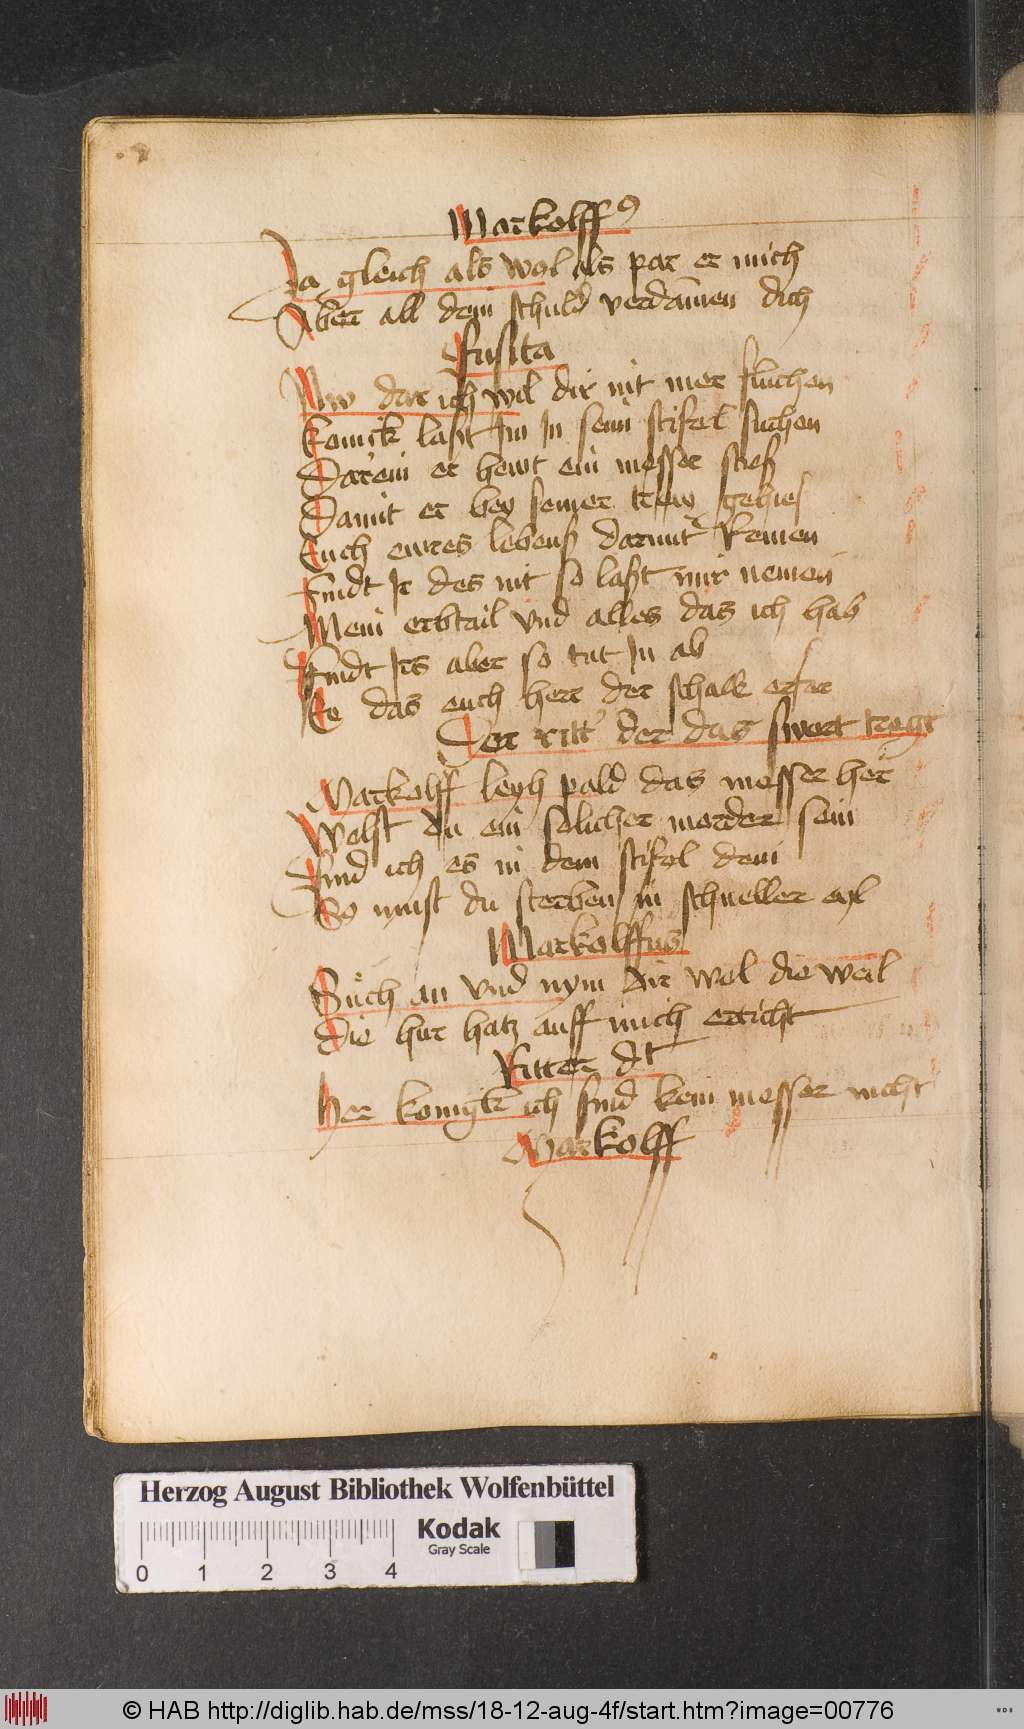 Markolff9
Ja gleich als wol als par er mich
Aber all dein schuld verdamen dich
Fusita
Nw dar ich wil dir nit mer fluchen
Konick last Im In sein stifel suchen
Darein er hewt ein messer sties
Damit er bey seiner trew gehies
Euch ewres lebens darmit kemen
Findt Ir des nit so last mir nemen
Mein erbtail vnd alles das ich hab
Findt Irs aber so tut In ab
Ee das euch herr der schalk erfar
Der ritt' der das swert tregt
Markolff leyh pald das messer her
Wolst du ein solicher morder sein
Find ich es in dem stifel dein
So must du sterben in schneller eyl
Markolffus
Such an vnd nym dir wol die weil
die hur hatz auff mich erticht
Ritter dt
Her konigk ich find kein messer nicht
Markolff
Herzog August Bibliothek Wolfenbüttel
Kodak
Gray Scale
0 1 2 3 4
© HAB http://diglib.hab.de/mss/18-12-aug-4f/start.htm?image=00776